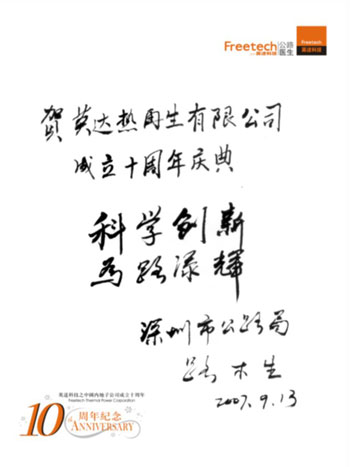 Freetech 公路医生 Freetech
英达科技 英达科技
贺英达热再生有限公司
成立十周年庆典
科学创新
为路添辉
深圳市公路局
2007.9.13
英達科技之中國內地子公司成立十周年
Freetech Thermal Power Corporation
10 周年纪念
ANNIVERSARY